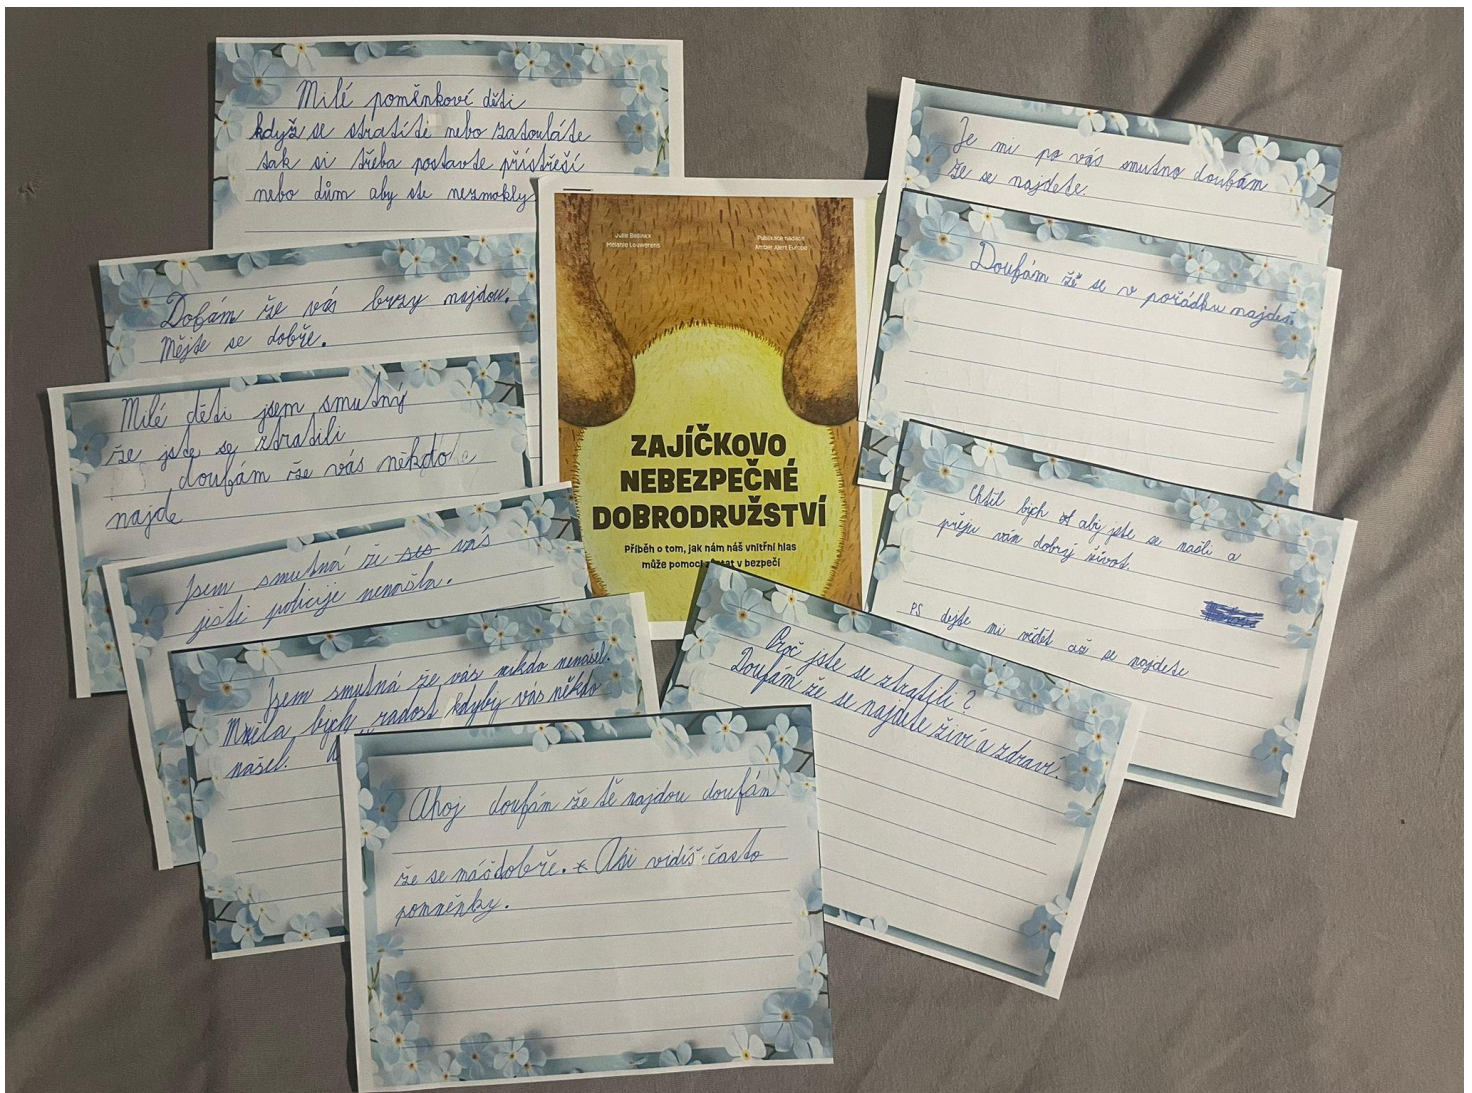 Milé poměnkoví děti
když se stratíte nebo zatouláte
tak si třeba postavte přístřeší
nebo dům aby ste nezmokly
Dobám že vás brzy najdou.
Mějte se dobře.
Milé děti jsem smutný
že jste se ztratili
doufám že vás někdo
najde
Jsem smutná že ses vás
ještě policije nenašla.
Jsem smutná že vás nikdo nenašel.
Měla bych radost kdyby vás někdo
našel.
Ahoj doufám že tě najdou doufám
že se máš dobře. * Asi vidíš často
pomněnky.
Julie Bellinkx
Mélanie Louwerens
Publikace nadace
Amber Alert Europe
ZAJÍČKOVO
NEBEZPEČNÉ
DOBRODRUŽSTVÍ
Příběh o tom, jak nám náš vnitřní hlas
může pomoci zůstat v bezpečí
Je mi po vás smutno doufám
že se najdete.
Doufám že se v pořádku najdeš.
Chtěl bych aby jste se našli a
přeju vám dobrý život.
PS dejte mi vědět až se najdete
Proč jste se ztratili?
Doufám že se najdete živí a zdraví.